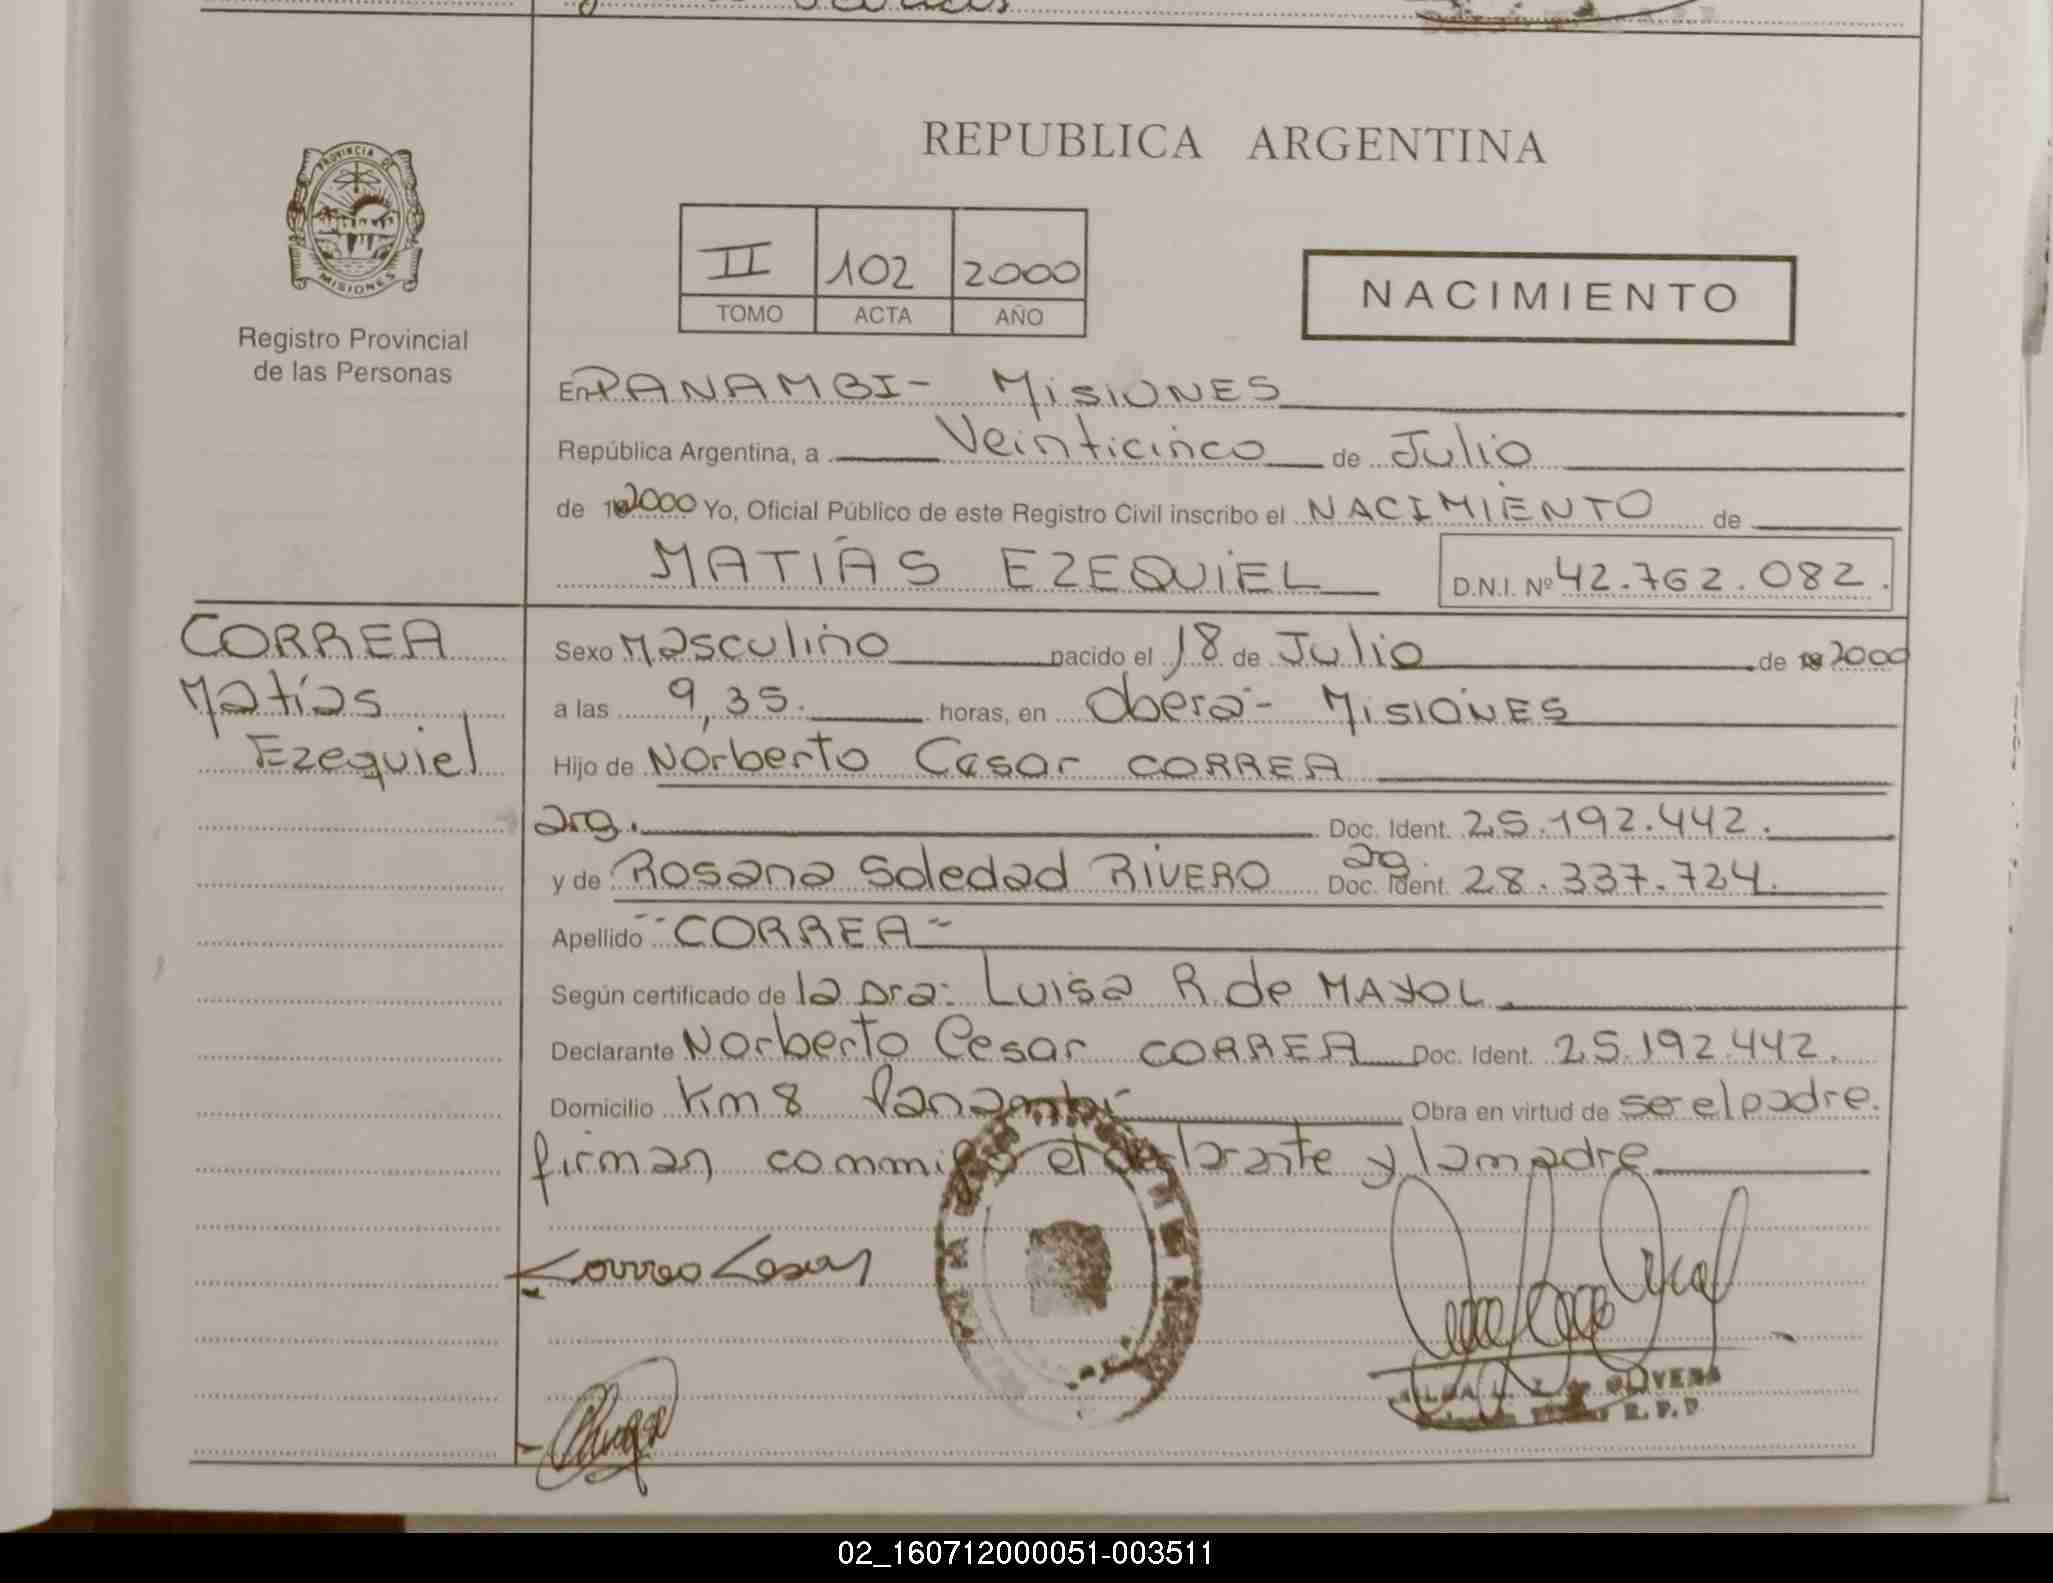 PROVINCIA DE
MISIONES
Registro Provincial
de las Personas
REPUBLICA ARGENTINA
II 102 2000
TOMO ACTA AÑO
NACIMIENTO
En PANAMBI- MISIONES
República Argentina, a Veinticinco de Julio
de 2000 Yo, Oficial Público de este Registro Civil inscribo el NACIMIENTO de
MATIAS EZEQUIEL D.N.I. Nº 42.762.082.
CORREA
Matías
Ezequiel
Sexo Masculino nacido el 18 de Julio de 2000
a las 9,35. horas, en Oberá- MISIONES
Hijo de Norberto Cesar CORREA
arg. Doc. Ident. 25.192.442.
y de Rosana Soledad RIVERO arg. Doc. Ident. 28.337.724.
Apellido "CORREA"
Según certificado de la Dra. Luisa R. de MAYOL
Declarante Norberto Cesar CORREA Doc. Ident. 25.192.442.
Domicilio Km 8 Panambi Obra en virtud de ser el padre.
firman commigo el declarante y la madre
Correa Cesar
OLIVERA
R.P.P
02_160712000051-003511